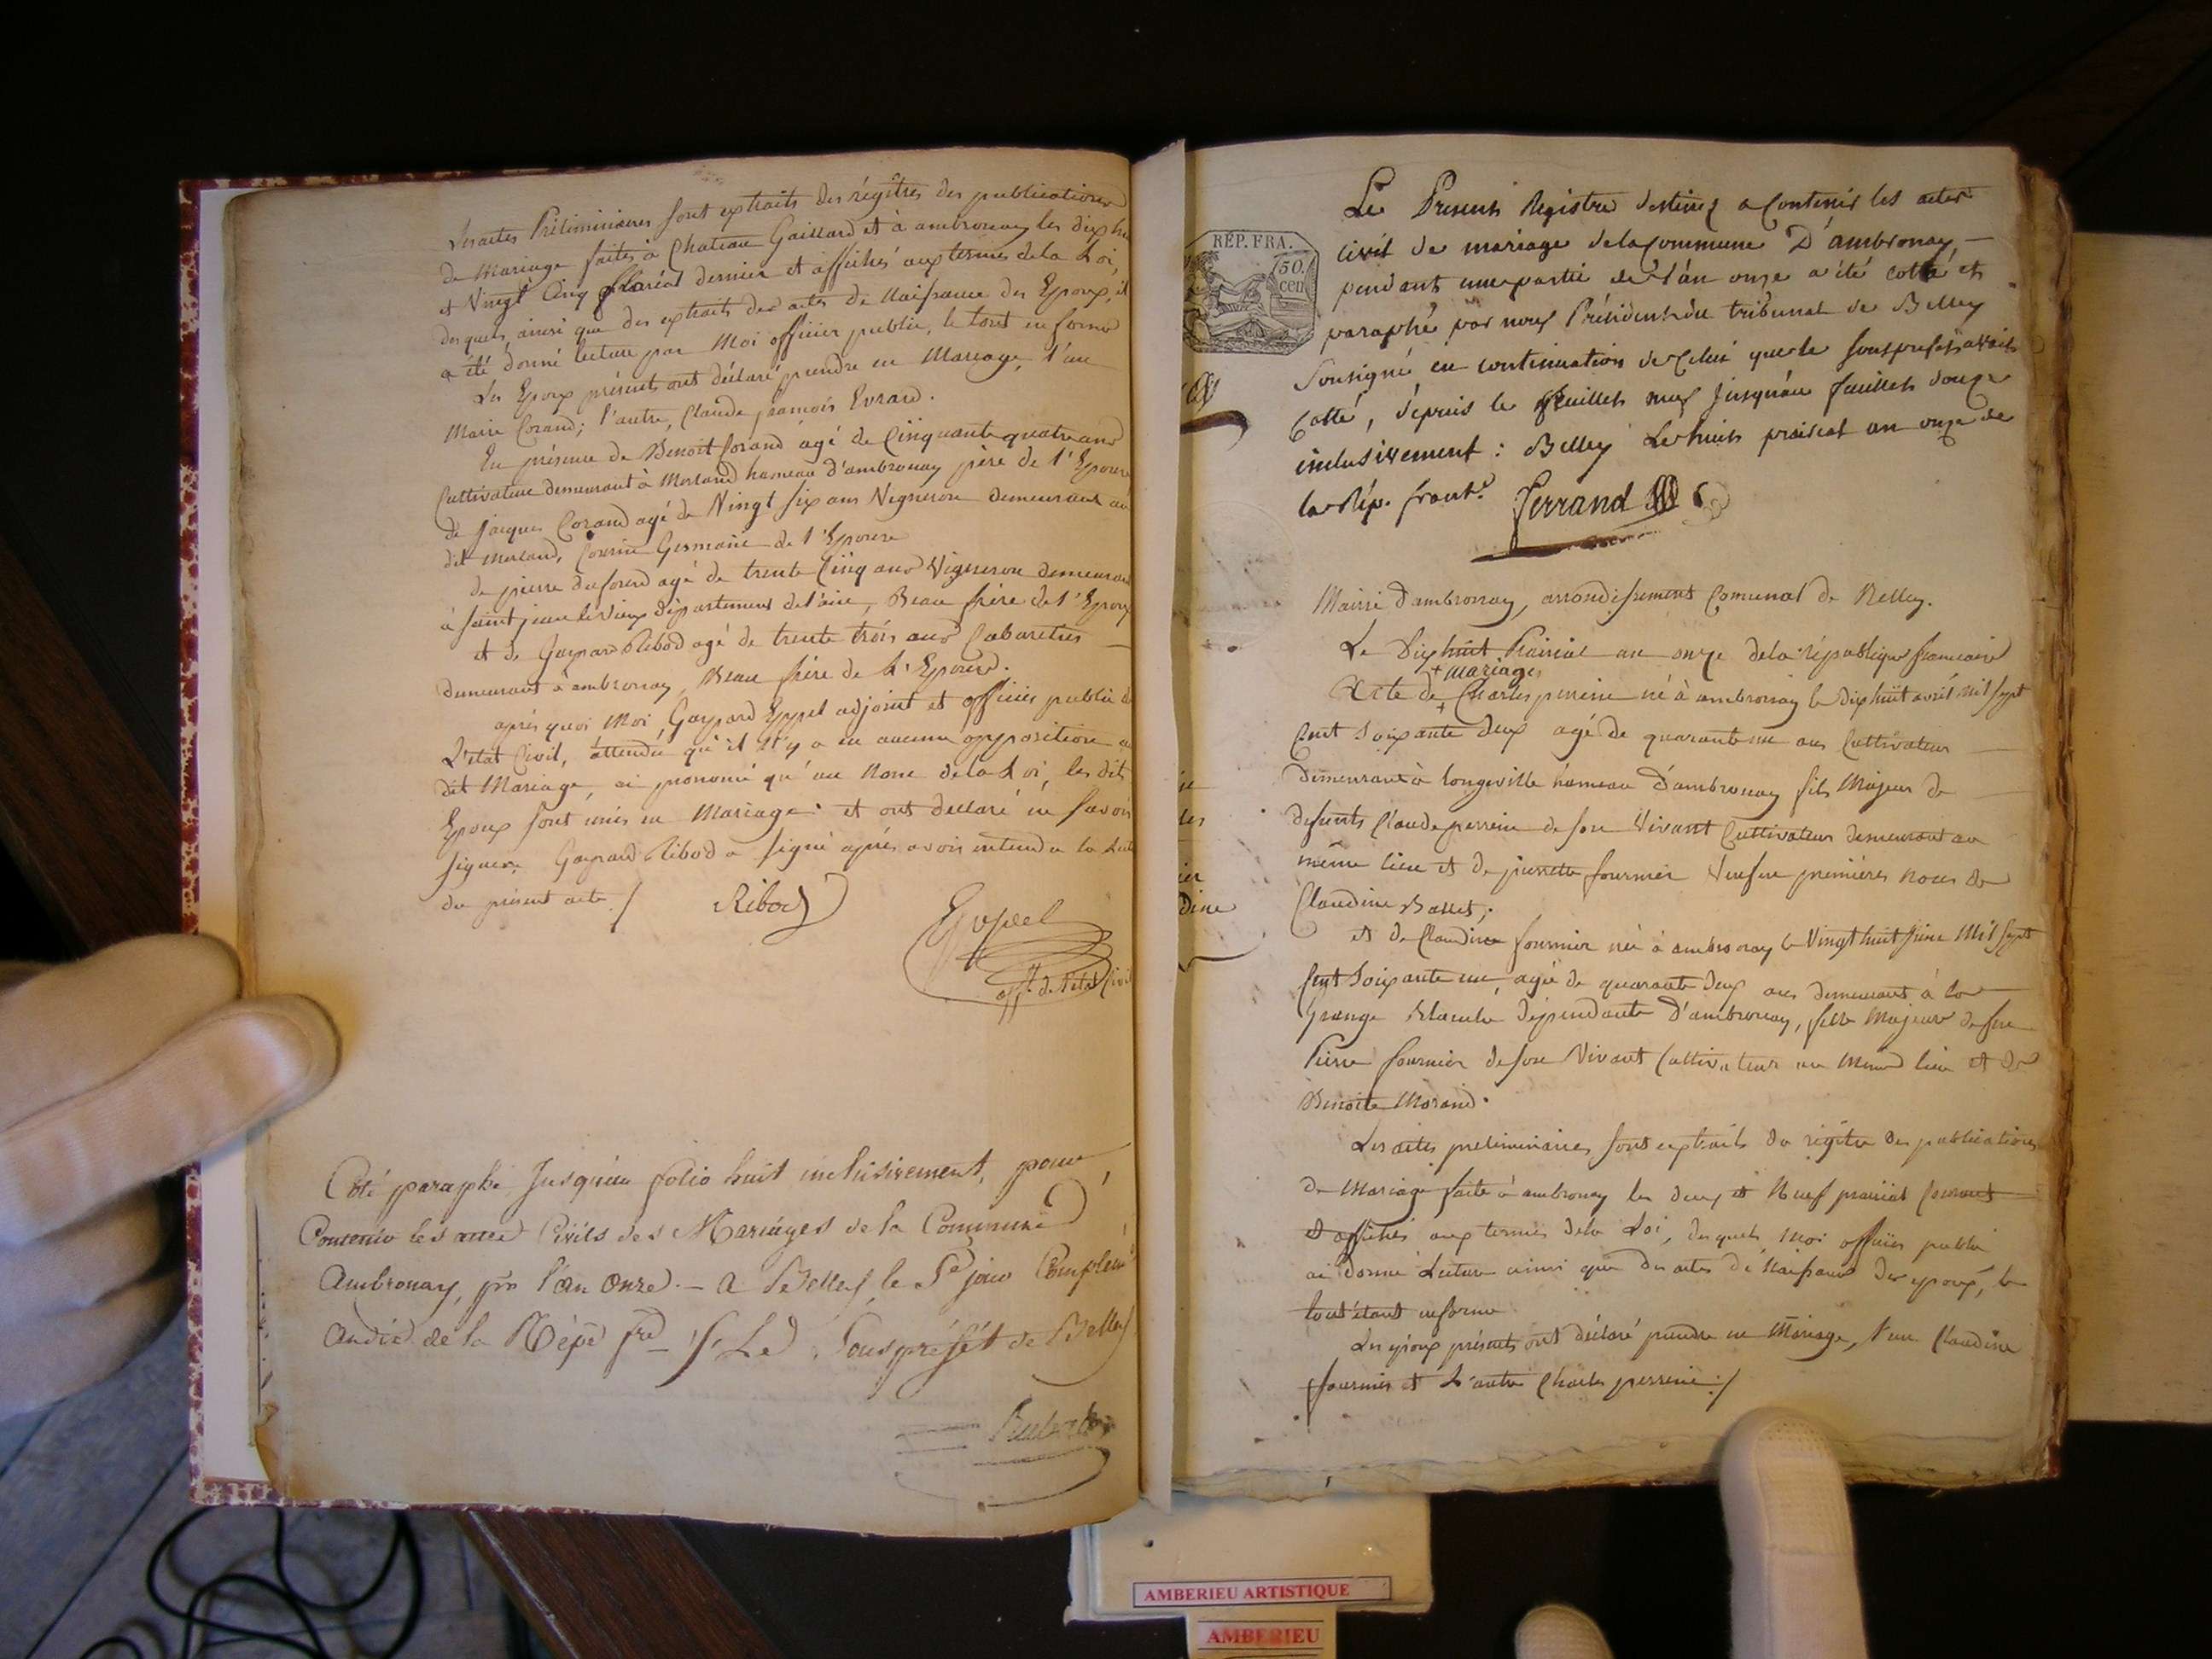 Les actes Préliminaires sont extraits des régîtres des publications
de Mariage faites à Chateau Gaillard et à ambronay les dix hu
et Vingt Cinq floréal dernier et affichés aux termes de la Loi,
desquels, ainsi que des extraits des actes de Naissance des Epoux, il
a été donné lecture par Moi officier public, le tout en forme
Les Epoux présents ont déclaré prendre en Mariage, l'un
Marie Corand; l'autre, Claude françois Evrard.
En présence de Benoit Corand agé de Cinquante quatre ans
Cultivateur demeurant à Morland hameau d'ambronay père de l'Epouse
de jacques Corand agé de Vingt six ans Vigneron demeurant au
dit Morland, Cousin Germain de l'Epouse
de pierre dufour agé de trente Cinq ans Vigneron demeurant
à saint jean le Vieux département de l'ain, Beau frère de l'Epoux
et de Gaspard Ribod agé de trente trois ans Cabaretier
demeurant à ambronay, Beau frère de L'Epouse.
après quoi Moi Gaspard Eppel adjoint et officier public de
L'état Civil, attendu qu'il N'y a eu aucune opposition au
dit Mariage, ai prononcé qu'au Nom de la Loi, les dits
Epoux sont unis en Mariage: et ont déclaré ne savoir
signer. Gaspard Ribod a signé après avoir entendu la Lect
du présent acte./ Ribod
Eppel
off. de l'état Civil
Coté paraphé Jusqu'au folio huit inclusivement, pour
Contenir les actes Civils des Mariages de la Commune
Ambronay, pr l'an Onze. — a Belley, le 5e jour Complem
an dix de la Répe fre Le Souspréfét de Belley
RÉP. FRA.
50.
cen
Le Present Registre destiné a Contenir les actes
civil de mariage de la Commune D'ambronay, —
pendant une partie de l'an onze a été cotté et
paraphé par nous Président du tribunal de Belley
Soussigné en continuation de Celui que le souspréfet avait
Cotté, depuis le feuillet neuf jusqu'au feuillet douze
inclusivement: Belley Le huit prairial an onze de
la Rép. franc.e Ferrand
Mairie d'ambronay, arrondissement Comunal de Belley.
Le Dix huit Prairial an onze de la république francaise
+ mariage
Acte de + Charles perrin né à ambronay le dix huit avril mil sept
Cent Soixante deux agé de quarante un ans Cultivateur
demeurant à longeville hameau d'ambronay fils Majeur de
defunts Claude perrin de son Vivant Cultivateur demeurant au
même lieu et de pierrette fournier Veuf en premières noces de
Claudine Ballet;
et de Claudine fournier née à ambronay le Vingt huit Mil sept
Cent Soixante un, agée de quarante deux ans demeurant à la
Grange Blanche dépendante d'ambronay, fille Majeure de feu
Pierre fournier de son Vivant Cultivateur au Même lieu et de
Benoite Morand.
Les actes preliminaires sont extraits du régitre des publications
de Mariage faite à ambronay les deux et Neuf prairial Courant
et affichés aux termes de la Loi, desquels Moi officier public
ai donné Lecture ainsi que des actes de Naissance des epoux, le
tout étant en forme
Les epoux présents ont déclaré prendre en Mariage, l'un Claudine
fournier et L'autre Charles perrin./
AMBERIEU ARTISTIQUE
AMBERIEU